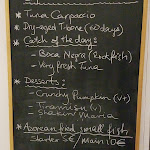 * Tuna Carpaccio
* Dry-aged T-bone (60 days)
* Catch of the day:
- Boca Negra (Rockfish)
- Very fresh Tuna
* Desserts:
- Crunchy Pumpkin (V+)
- Tiramisu (v)
- Maria
* Azorean fried small fish
Starter 5€/main 10€